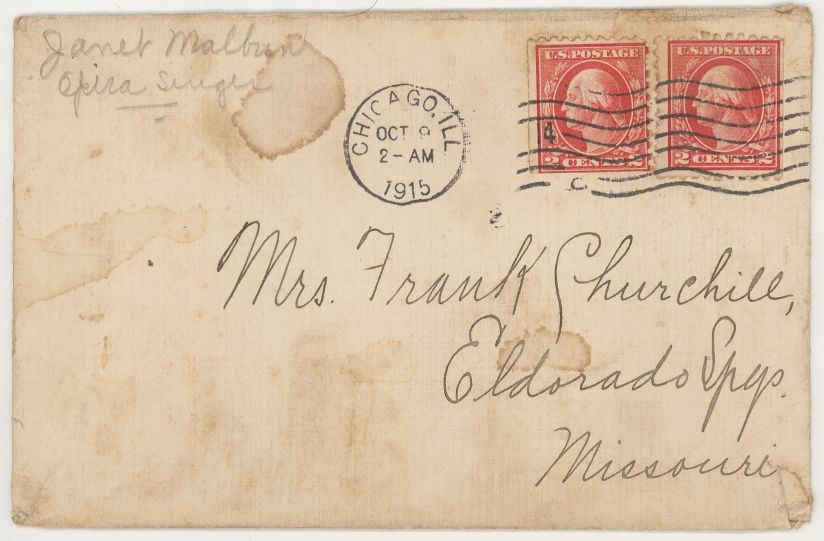 Janet Malbun
Opera Singer
CHICAGO, ILL
OCT 9
2-AM
1915
U.S. POSTAGE
2 CENTS 2
U.S. POSTAGE
2 CENTS 2
Mrs. Frank Churchill,
Eldorado Spgs.
Missouri